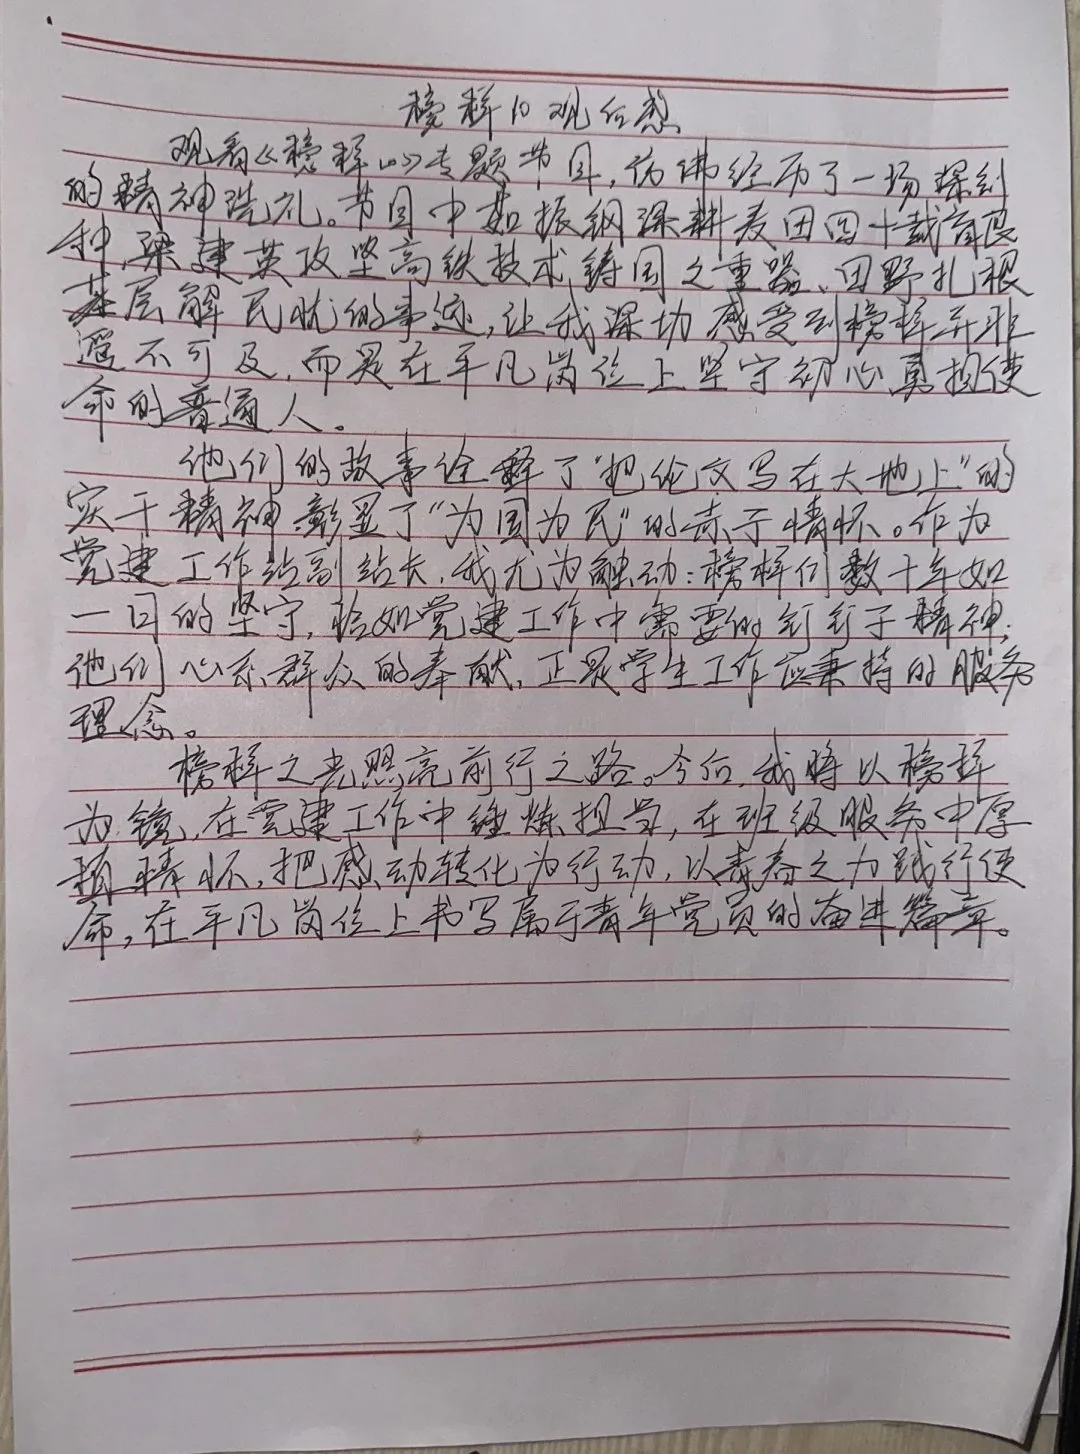 榜样10观后感
观看《榜样10》专题节目，仿佛经历了一场深刻
的精神洗礼。节目中茹振钢深耕麦田四十载育良
种、梁建英攻坚高铁技术铸国之重器、田野扎根
基层解民忧的事迹，让我深切感受到榜样并非
遥不可及，而是在平凡岗位上坚守初心勇担使
命的普通人。
他们的故事诠释了“把论文写在大地上”的
实干精神彰显了“为国为民”的赤子情怀。作为
党建工作站副站长，我尤为触动：榜样们数十年如
一日的坚守，恰如党建工作中需要的钉钉子精神；
他们心系群众的奉献，正是学生工作应秉持的服务
理念。
榜样之光照亮前行之路。今后，我将以榜样
为镜，在党建工作中锤炼担当，在班级服务中厚
植情怀，把感动转化为行动，以青春之力践行使
命，在平凡岗位上书写属于青年党员的奋进篇章。